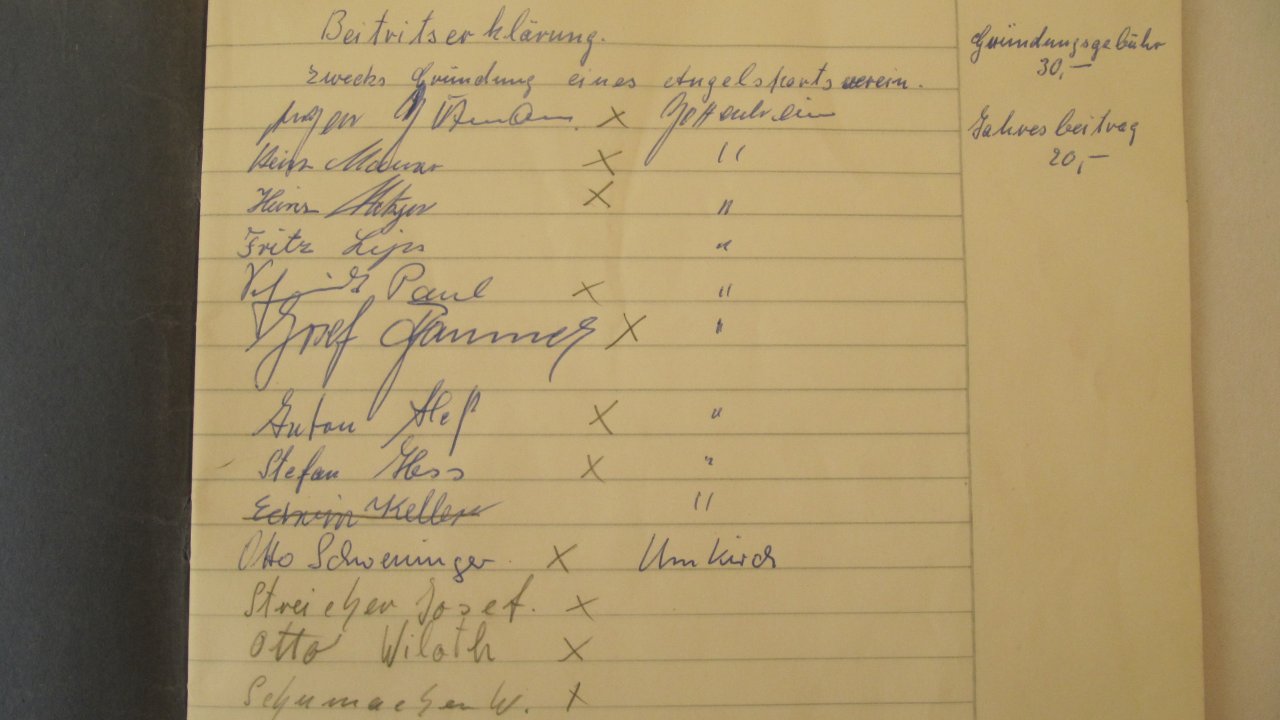 Beitritserklärung.
zwecks Gründung eines Angelsportsverein.
× Gottenheim
× "
Heinz Metzger × "
Fritz Lips "
Paul × "
Josef × "
Anton Heß × "
Stefan Hess × "
Erwin Keller "
Otto Schweninger × Umkirch
Streicher Josef. ×
Otto Wiloth ×
Schumacher W. ×
Gründungsgebühr
30,—
Jahresbeitrag
20,—